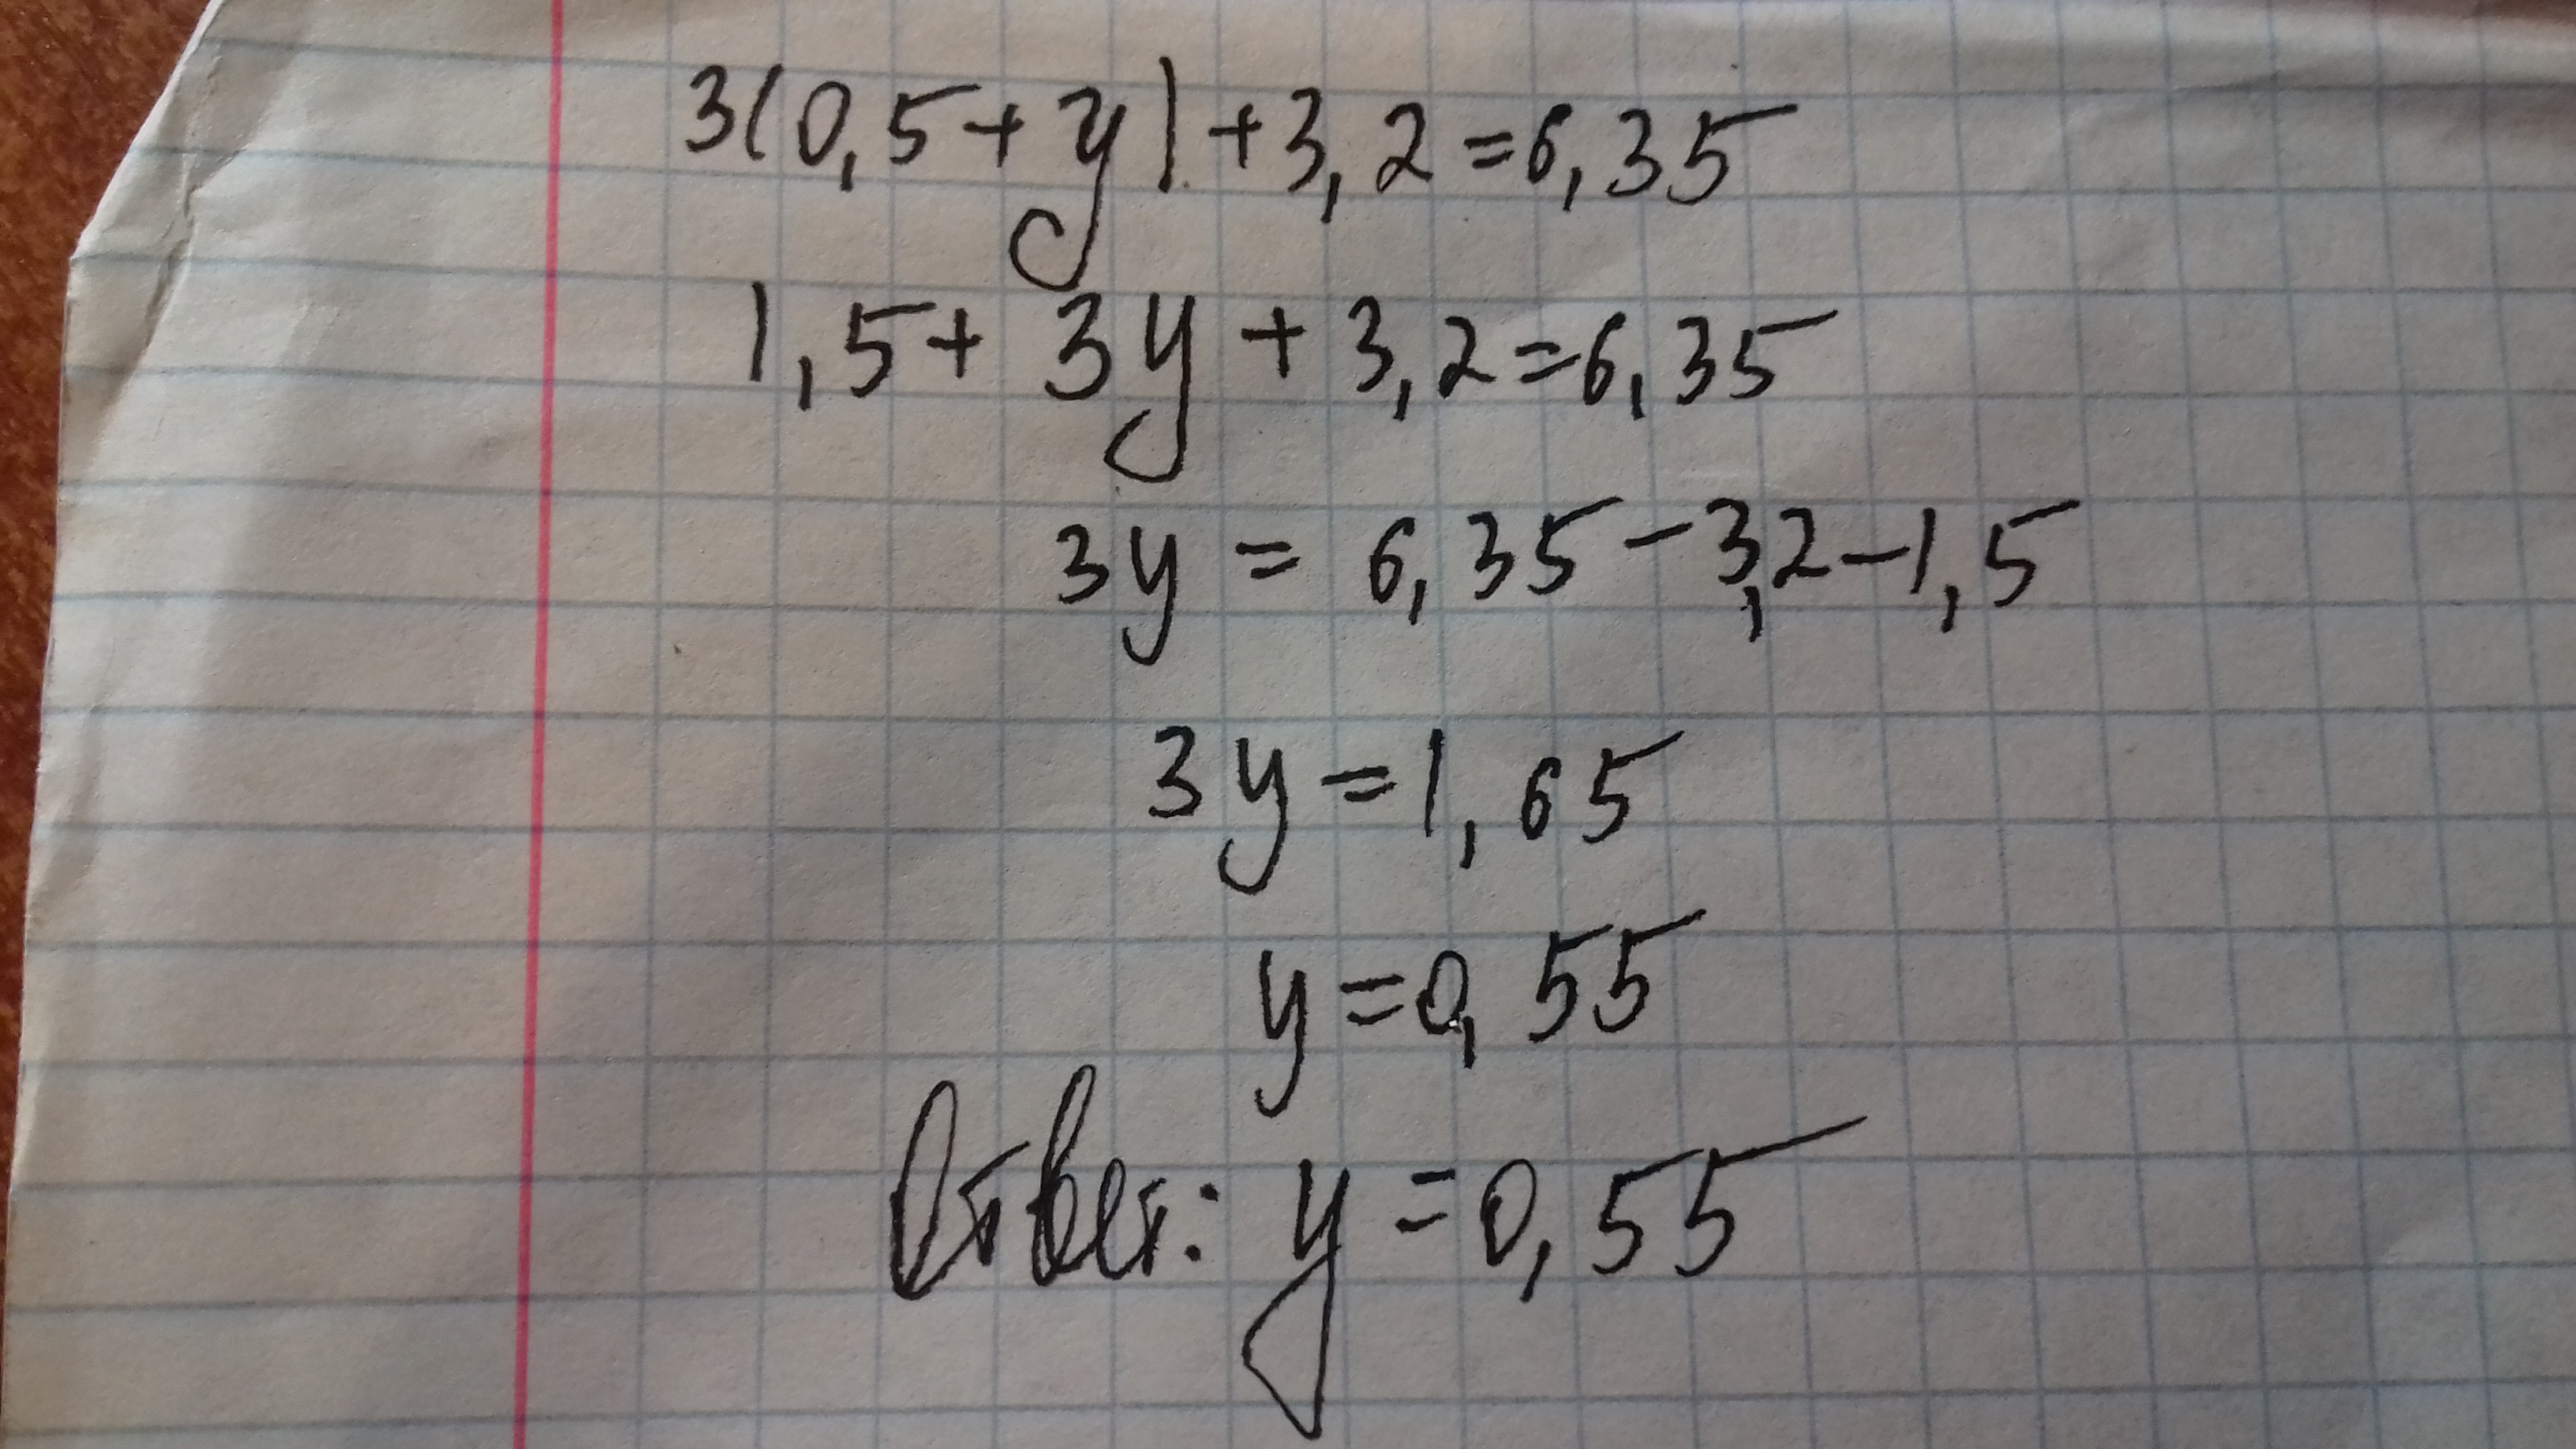 3(0,5+y)+3,2=6,35
1,5+3y+3,2=6,35
3y=6,35-3,2-1,5
3y=1,65
y=0,55
Ответ: y=0,55